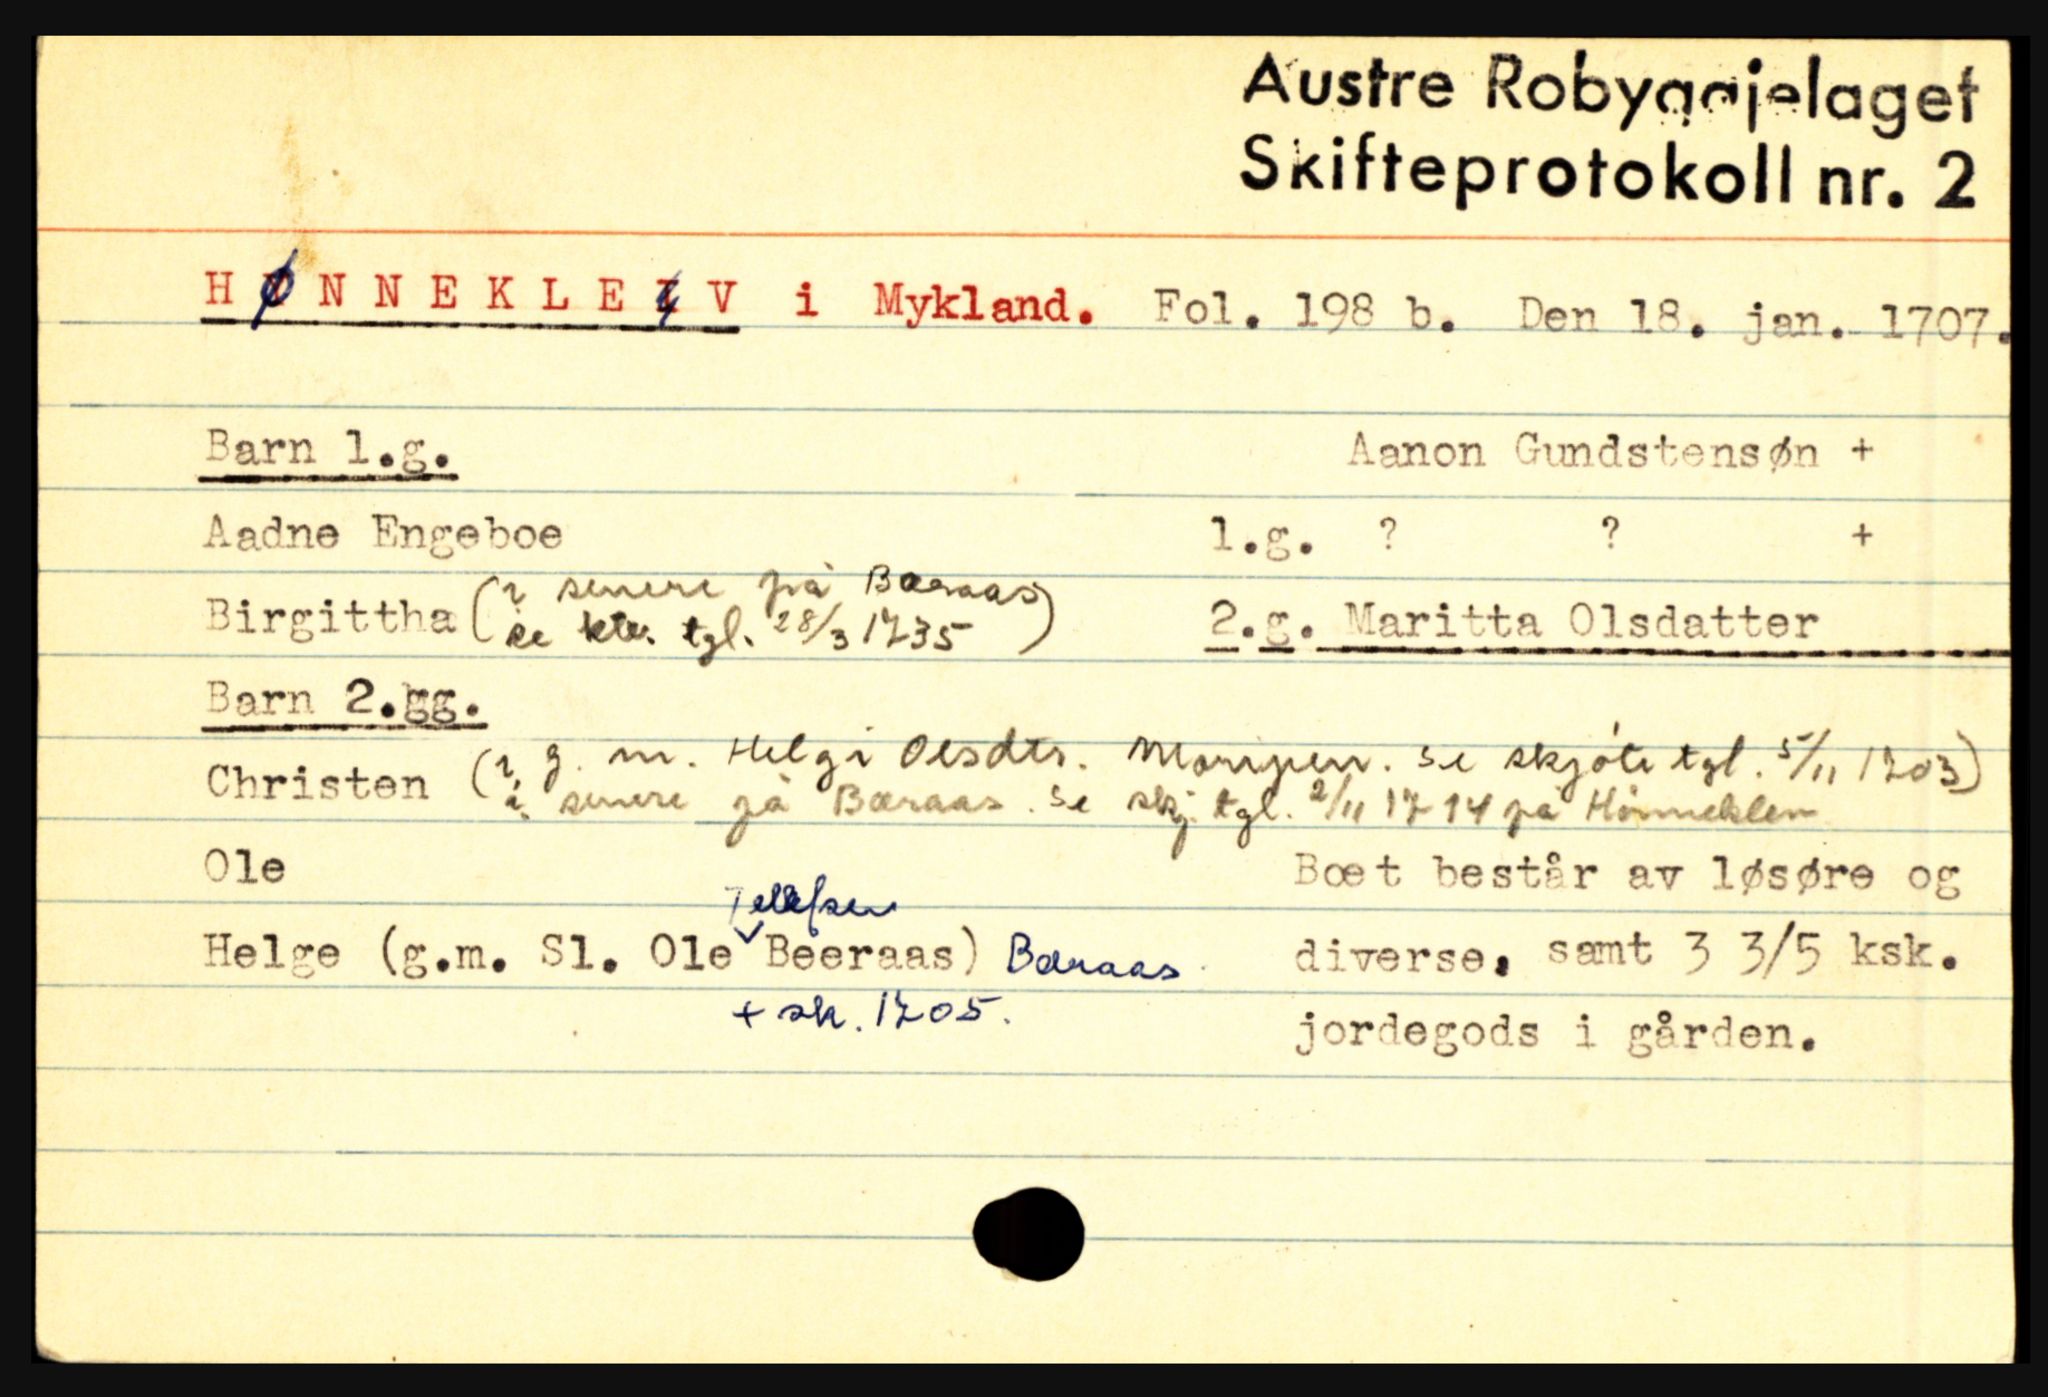 Austre Robyggjelaget
Skifteprotokoll nr. 2
HØNNEKLEIV i Mykland. Fol. 198 b. Den 18. jan. 1707.
Barn 1.g. Aanon Gundstensøn +
Aadne Engeboe 1.g. ? ? +
Birgittha (i senere på Børaas
se ktr. tgl. 28/3 1735) 2.g. Maritta Olsdatter
Barn 2.gg.
Christen (i g. m. Helgi Olsdtr. se skjøte tgl. 5/11 1703)
i senere på Børaas. se skj. tgl. 2/11 1714 på Hønneklev
Ole Boet består av løsøre og
Tellefsen
Helge (g.m. Sl. Ole Beeraas) Børaas diverse, samt 3 3/5 ksk.
+ sk. 1705. jordegods i gården.